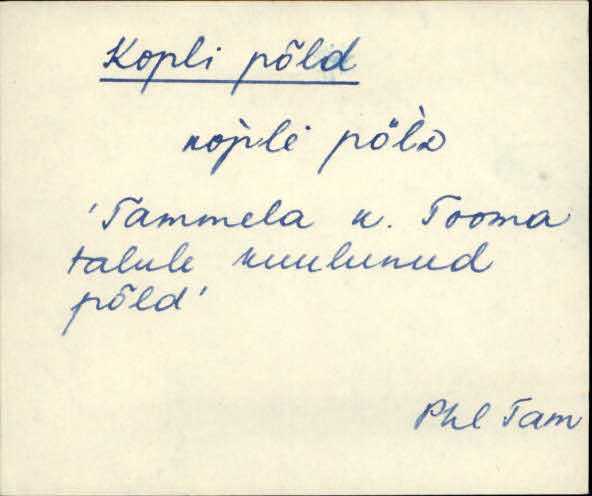 Kopli põld
kop̀li pöl̀D
'Tammela k. Tooma
talule kuulunud
põld'
Phl Tam